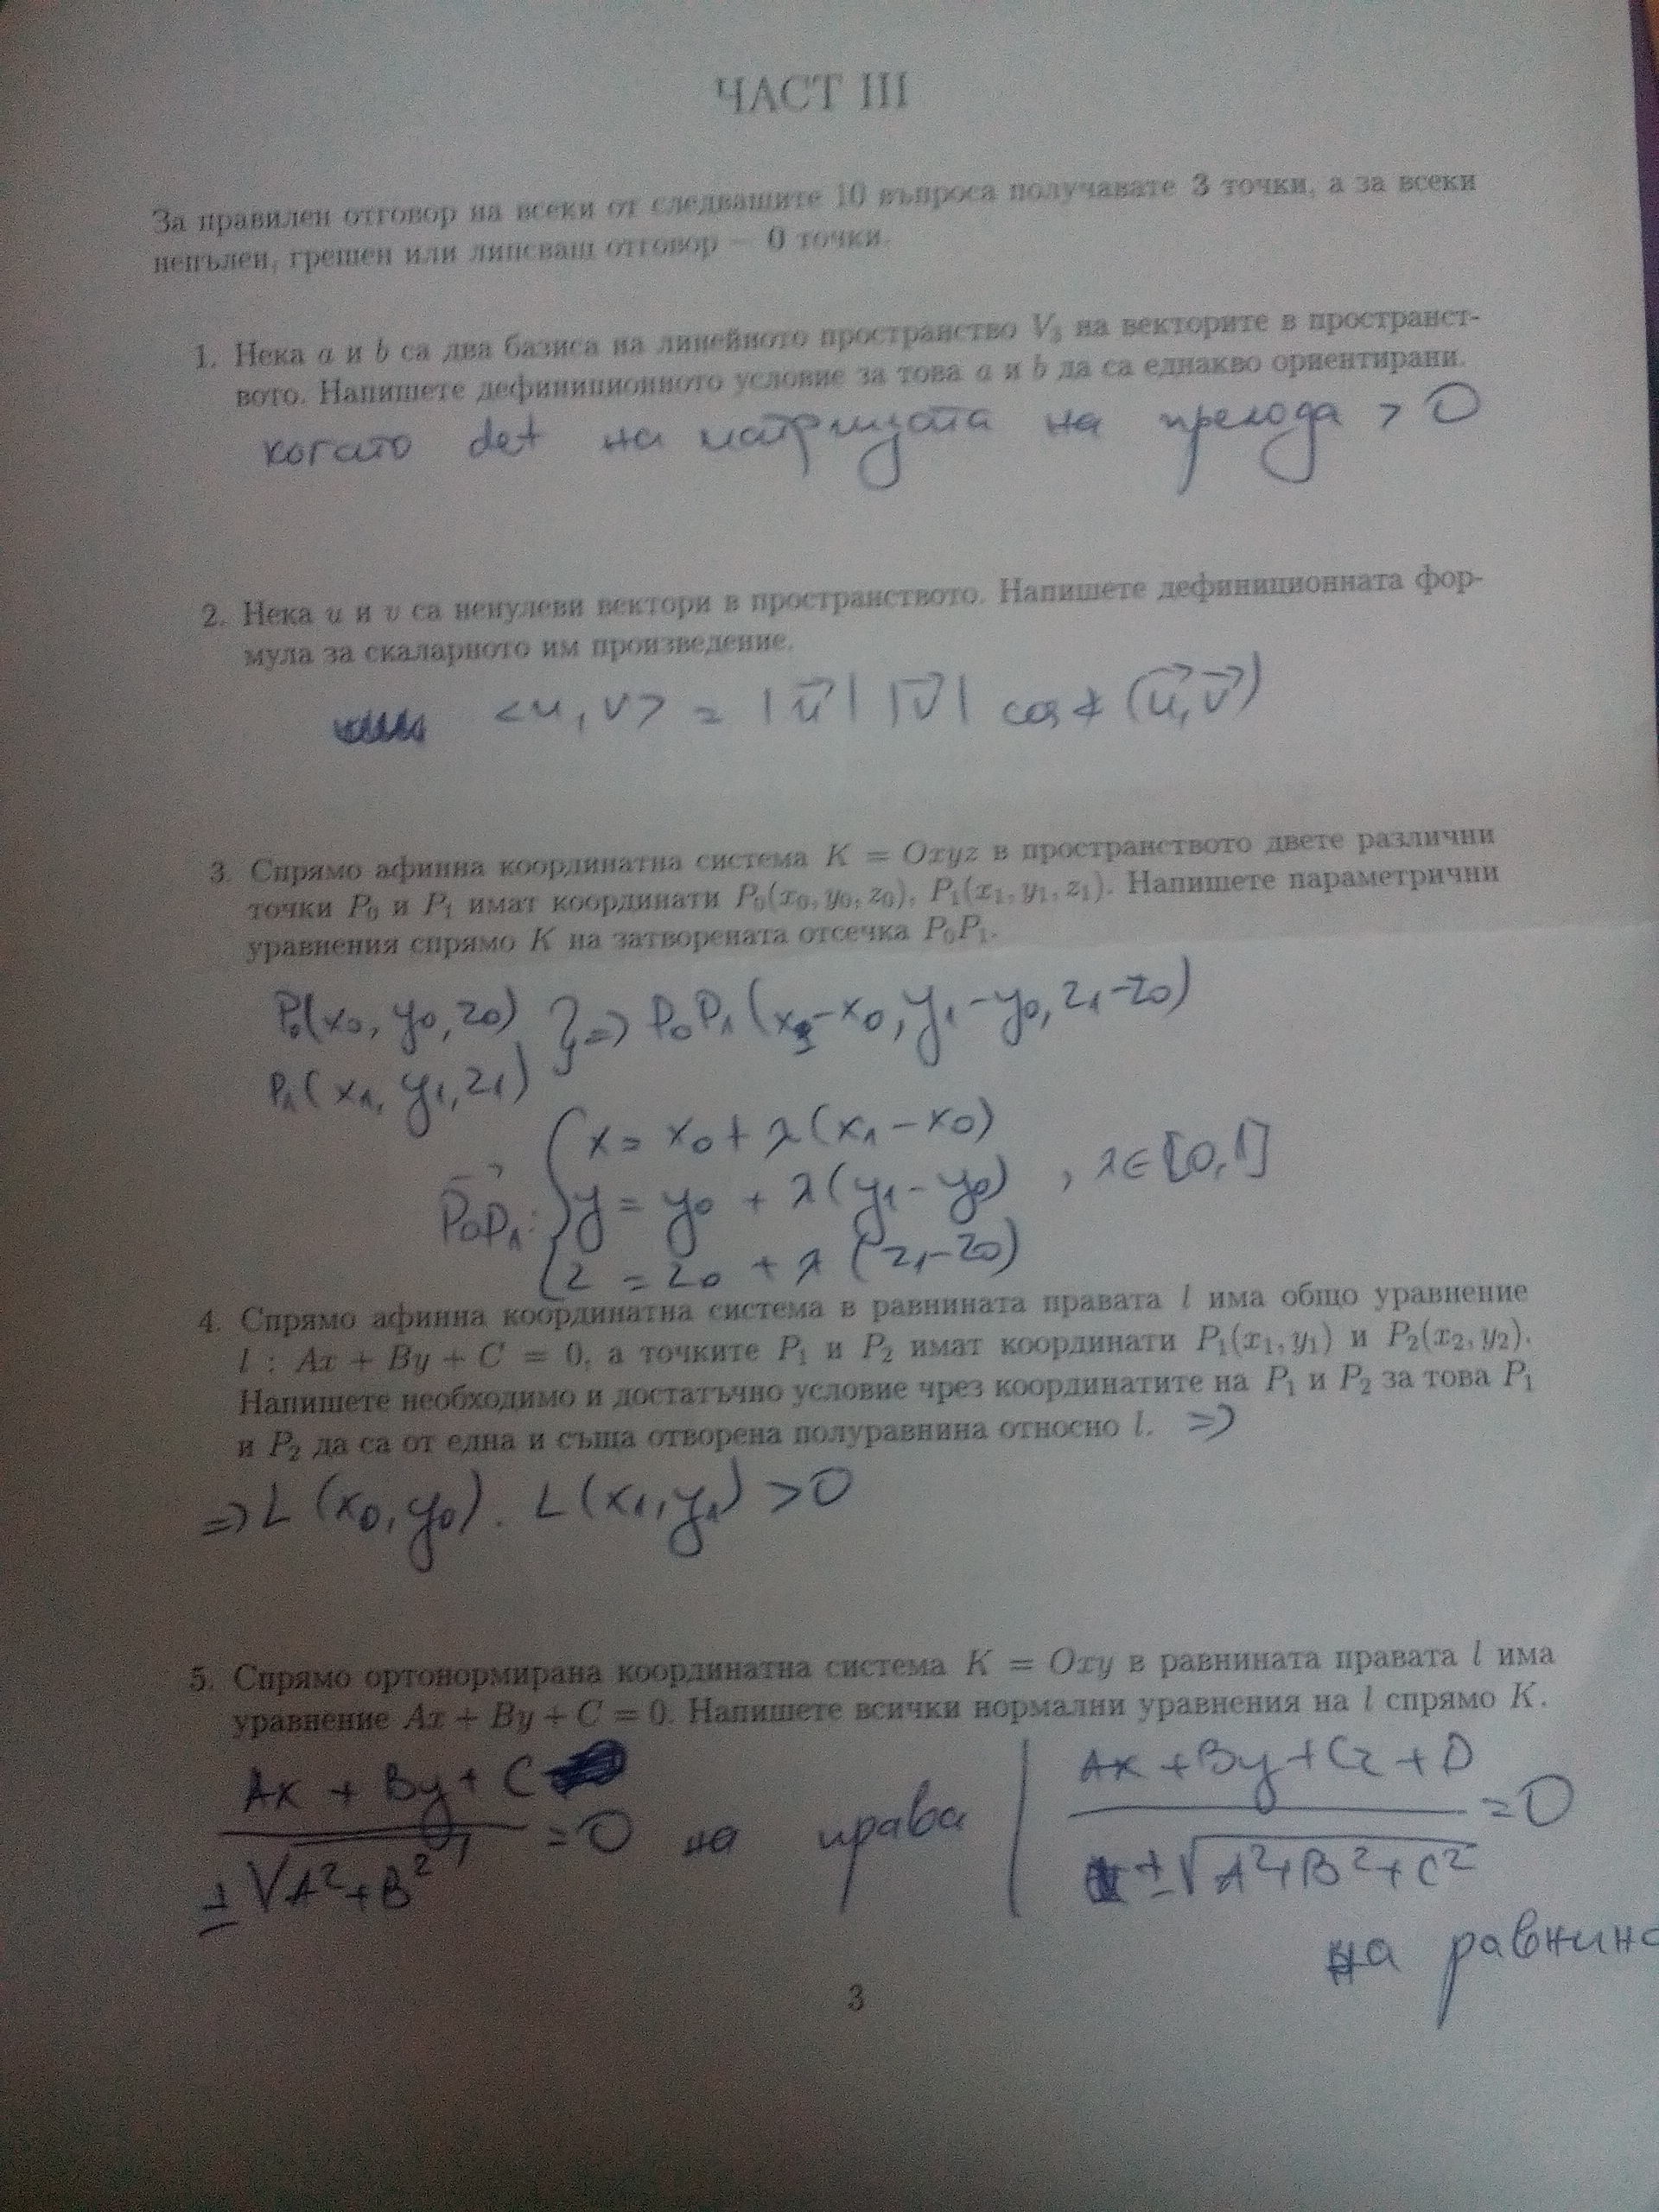 ЧАСТ III
За правилен отговор на всеки от следващите 10 въпроса получавате 3 точки, а за всеки
непълен, грешен или липсващ отговор – 0 точки.
1. Нека a и b са два базиса на линейното пространство V₃ на векторите в пространст-
вото. Напишете дефиниционното условие за това a и b да са еднакво ориентирани.
когато det на матрицата на прехода > 0
2. Нека u и v са ненулеви вектори в пространството. Напишете дефиниционната фор-
мула за скаларното им произведение.
<u, v> = |u⃗| |v⃗| cos∢(u⃗, v⃗)
3. Спрямо афинна координатна система K = Oxyz в пространството двете различни
точки P₀ и P₁ имат координати P₀(x₀, y₀, z₀), P₁(x₁, y₁, z₁). Напишете параметрични
уравнения спрямо K на затворената отсечка P₀P₁.
P₀(x₀, y₀, z₀) } => P₀P₁(x₁-x₀, y₁-y₀, z₁-z₀)
P₁(x₁, y₁, z₁)
x = x₀ + λ(x₁-x₀)
P₀P₁: { y = y₀ + λ(y₁-y₀) , λ∈[0,1]
z = z₀ + λ(z₁-z₀)
4. Спрямо афинна координатна система в равнината правата l има общо уравнение
l : Ax + By + C = 0, а точките P₁ и P₂ имат координати P₁(x₁, y₁) и P₂(x₂, y₂).
Напишете необходимо и достатъчно условие чрез координатите на P₁ и P₂ за това P₁
и P₂ да са от една и съща отворена полуравнина относно l. =>
=> L(x₀, y₀) . L(x₁, y₁) > 0
5. Спрямо ортонормирана координатна система K = Oxy в равнината правата l има
уравнение Ax + By + C = 0. Напишете всички нормални уравнения на l спрямо K.
Ax + By + C / ±√A²+B² = 0 на права | Ax + By + Cz + D / ±√A²+B²+C² = 0
на равнина
3